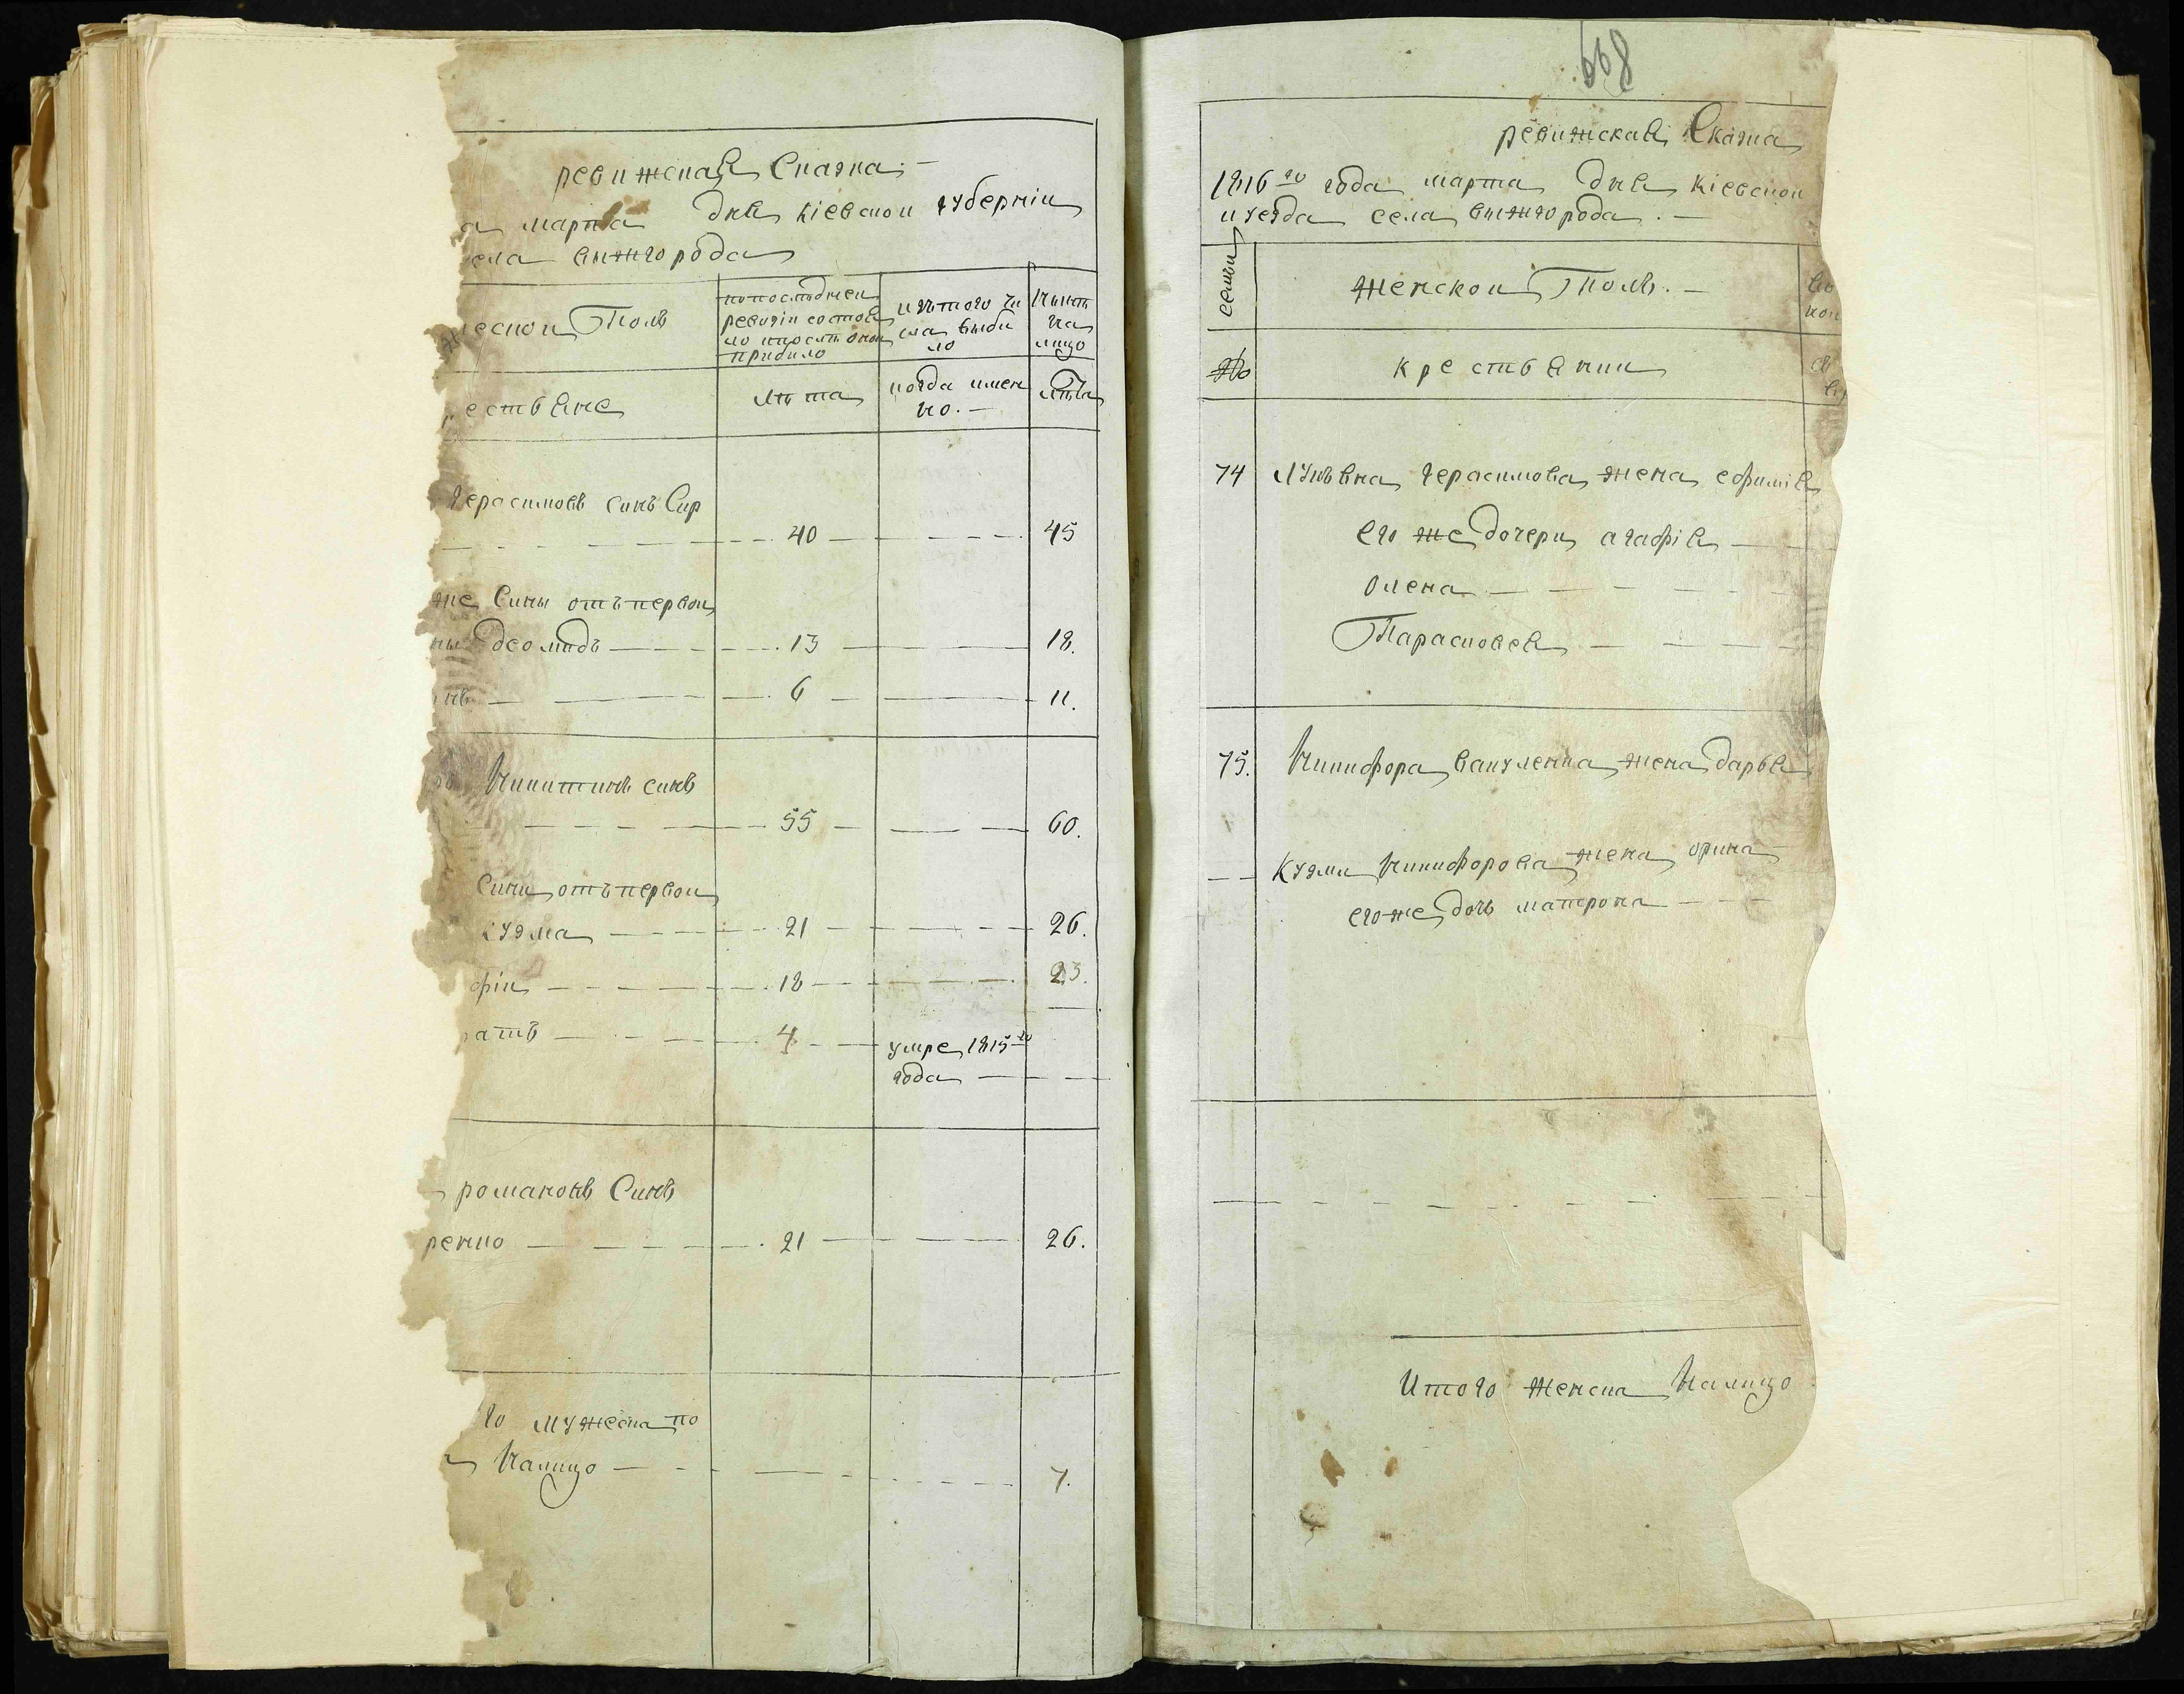 ревижская Сказка. —
а марта дня кіевской губерніи
села вижгорода
мужеской Полъ
попоследней ревизіи состояло ипослѣ оной прибило
изътого числа выбило
Нынѣ на лицо
рествяне
лѣта
когда имено. —
Лѣта
Герасимовъ синъ Сир
40 45
же Сины отъ первои
ны деомидъ 13 18.
нъ 6 11.
Никитинъ синъ
55 60.
Сини отъ первои
кузма 21 26.
фіи 18 23.
атъ 4 умре 1815го
года
романовъ Синъ
ренко 21 26.
го мужеска по
Налицо 7.
668
ревижская Сказка
1816го года марта дня кіевской
и уезда села вижгорода. —
семьи
женской Полъ. —
№
крествянки
74 Лукъяна Герасимова жена ефимія
его же дочери агафія
Олена
Парасковея
75. Никифора вакуленка жена дарья
Кузми Никифорова жена орина
егоже дочь матрона
Итого женска Налицо